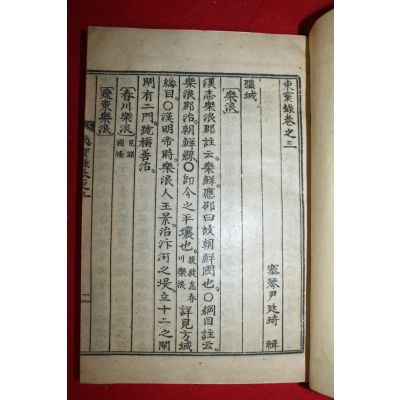 東寰錄卷之三
塞琴尹廷琦 輯
疆域
樂浪
漢志樂浪郡註云樂鮮應邵曰故朝鮮國也○綱目註云
樂浪郡治朝鮮縣○即今之平壤也後徙爲春川樂浪詳見方域
総目○漢明帝時樂浪人王景治汴河之堤立十二之閘
閘有二門號稱善治
春川樂浪 見諸國條
遼東樂浪